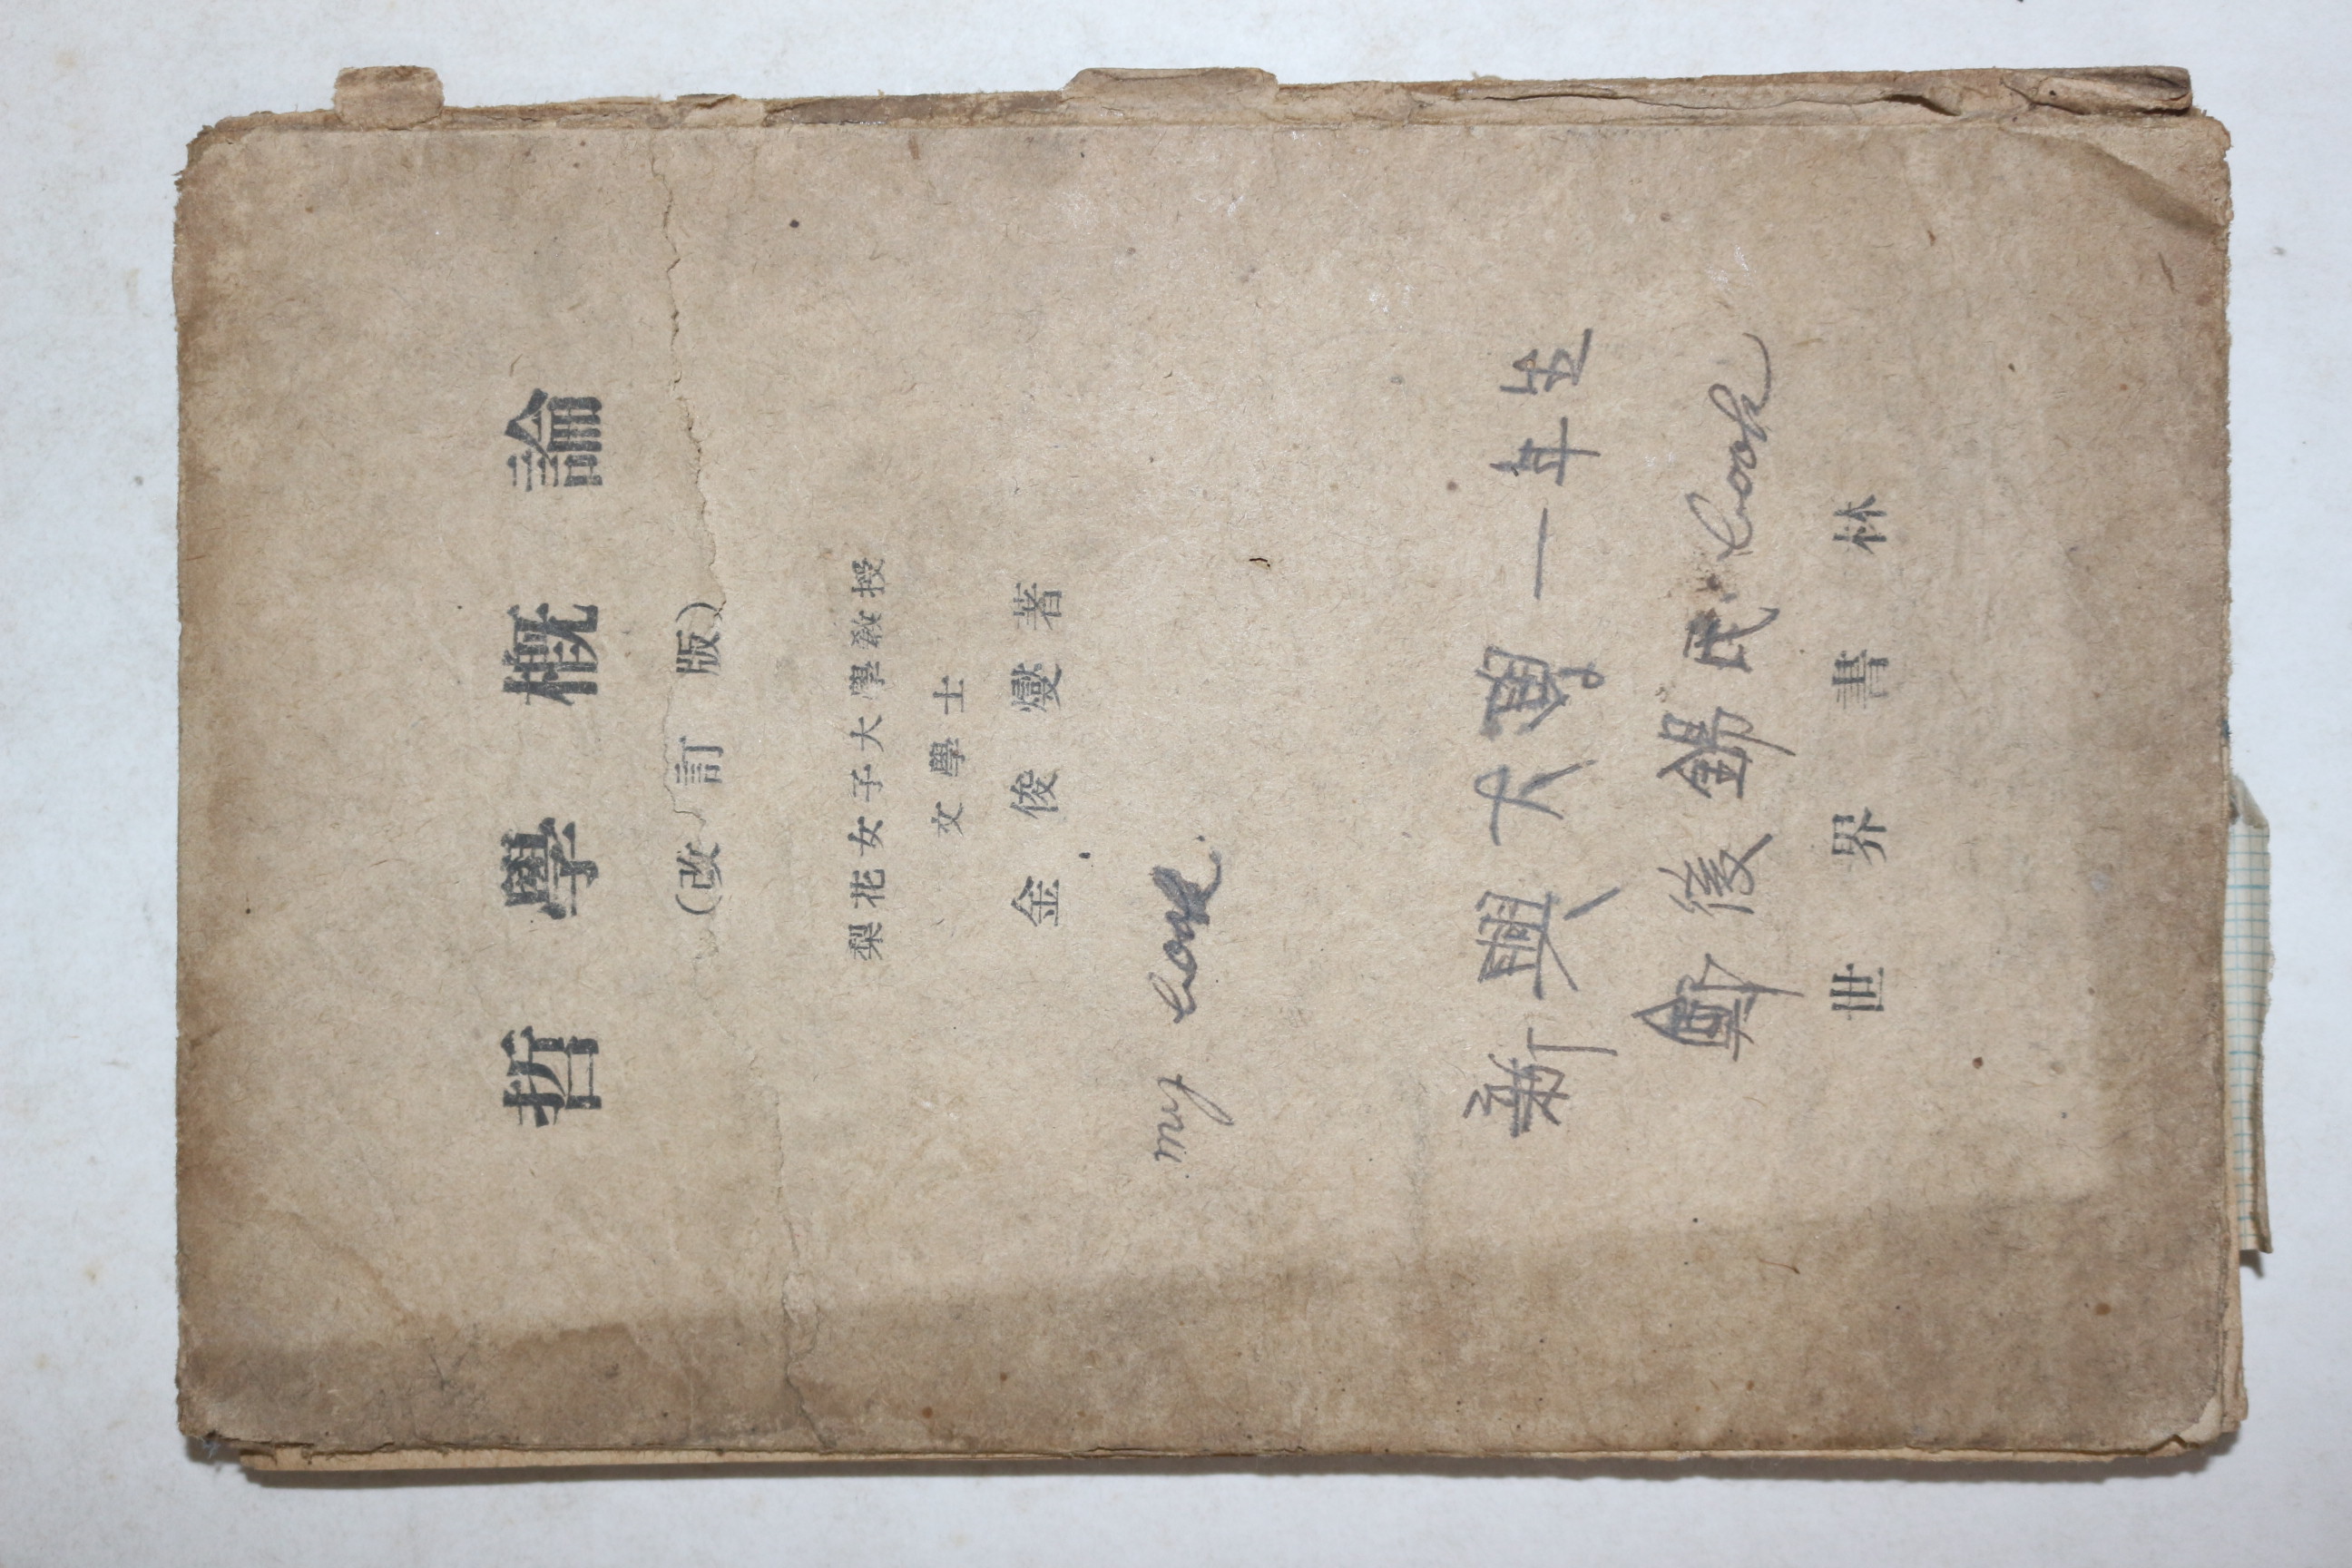 哲學概論
(改訂版)
梨花女子大學敎授
文學士
金俊燮著
my book
新興大學一年生
鄭後錫氏 book
世界書林